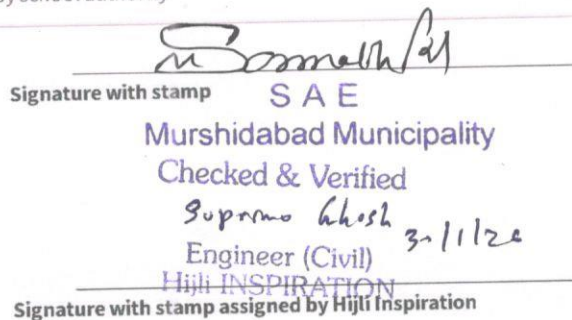 Somnath Pal
Signature with stamp
S A E
Murshidabad Municipality
Checked & Verified
Supromo Ghosh
30/1/26
Engineer (Civil)
Hijli INSPIRATION
Signature with stamp assigned by Hijli Inspiration